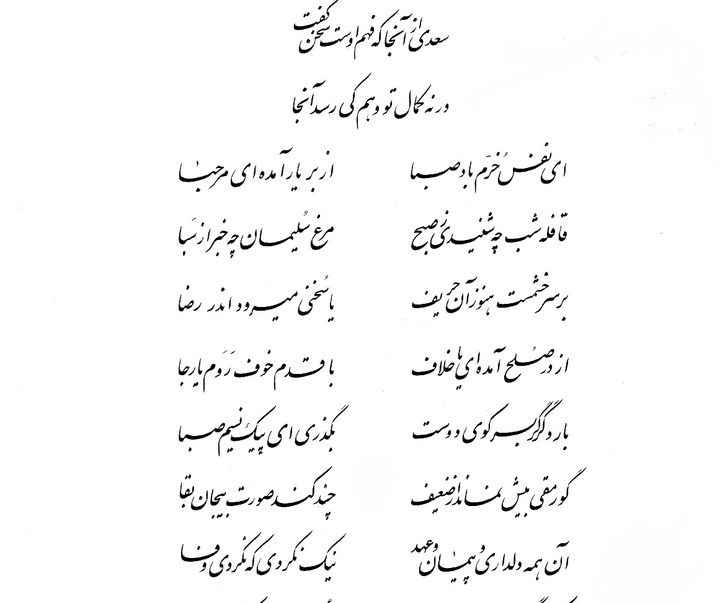 سعدی از آنجا که فهم اوست سخن گفت
ورنه کمال تو وهم کی رسد آنجا
ای نفس خرّم باد صبا از بر یار آمده ای مرحبا
قافله شب چه شنیدی ز صبح مرغ سُلیمان چه خبر از سَبا
بر سر خشمست هنوز آن حریف یا سُخنی میرود اندر رضا
از در صُلح آمده ای یا خلاف با قدم خوف رَوَم یا رجا
بار دگر گر بسر کوی دوست بگذری ای پیک نسیم صبا
گو رمقی بیش نماند از ضعیف چند کند صورت بیجان بقا
آن همه دلداری و پیمان و عهد نیک نکردی که نکردی وفا